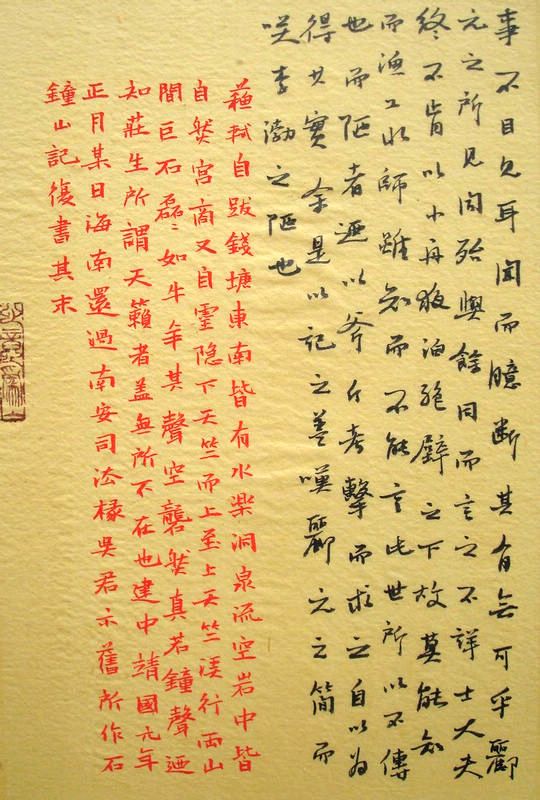 事不目見耳聞而臆斷其有無可乎酈
元之所見聞殆與餘同而言之不詳士大夫
終不肯以小舟夜泊絕壁之下故莫能知
而漁工水師雖知而不能言此世所以不傳
也而陋者迺以斧斤考擊而求之自以為
得其實余是以記之蓋嘆酈元之簡而
咲李渤之陋也
蘓軾自跋錢塘東南皆有水樂洞泉流空岩中皆
自然宮商又自靈隱下天竺而上至上天竺溪行兩山
間巨石磊々如牛羊其聲空礱然真若鐘聲迺
知莊生所謂天籟者蓋無所不在也建中靖國元年
正月某日海南還過南安司法掾吳君示舊所作石
鐘山記復書其末